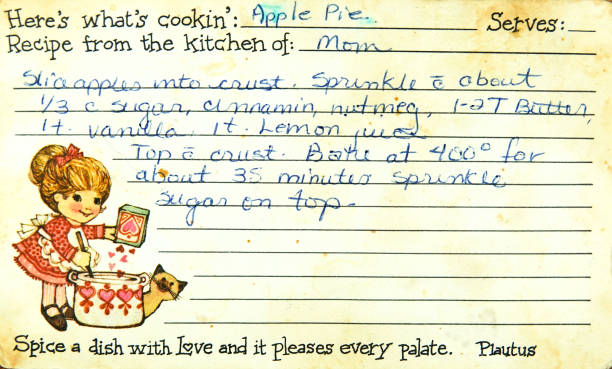 Here's what's cookin': Apple Pie. Serves:
Recipe from the kitchen of: Mom
Slice apples into crust. Sprinkle c̄ about
1/3 c sugar, cinnamin, nutmeg, 1-2T Butter,
1t. vanilla. 1t. Lemon juice
Top c̄ crust. Bake at 400° for
about 35 minutes sprinkle
sugar on top.
Spice a dish with Love and it pleases every palate. Plautus